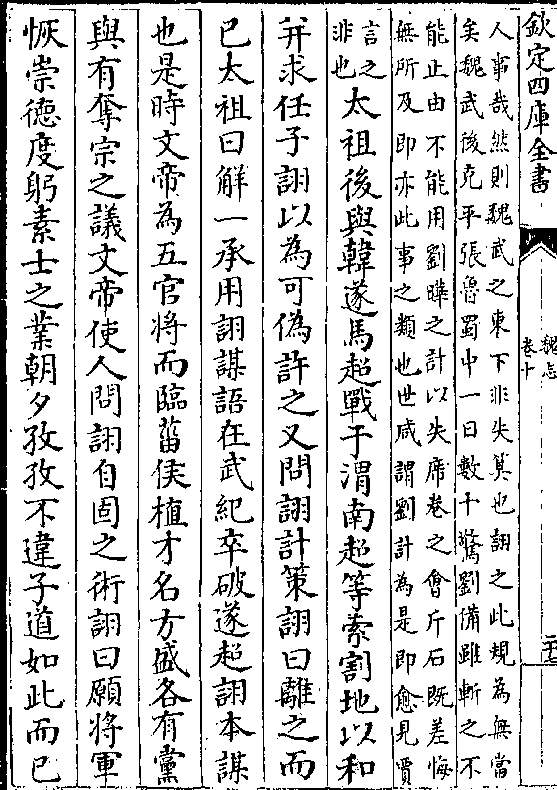 欽定四庫全書
魏志
卷十
人事哉然則魏武之東下非失算也詡之此規為無當
矣魏武後克平張魯蜀中一日數十驚劉備雖斬之不
能止由不能用劉曄之計以失席卷之會斤石既差悔
無所及即亦此事之類也世咸謂劉計為是即愈見賈
言之
非也
太祖後與韓遂馬超戰于渭南超等索割地以和
并求任子詡以為可偽許之又問詡計策詡曰離之而
已太祖曰解一承用詡謀語在武紀卒破遂超詡本謀
也是時文帝為五官將而臨菑侯植才名方盛各有黨
與有奪宗之議文帝使人問詡自固之術詡曰願將軍
恢崇德度躬素士之業朝夕孜孜不違子道如此而已